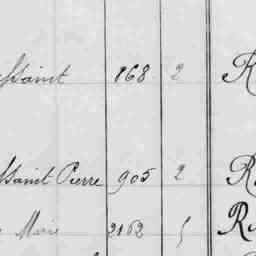 ssaint 868 2 R
ssaint Pierre 905 2 R
Marie 2162 5 Ro